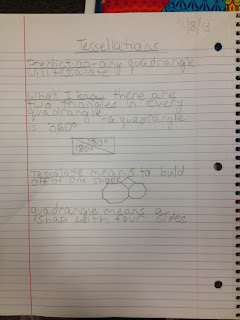 11/8/13
Tessellations
Prediction-any quadrangle
will tessalate
What I know there are
two triangles in every
quadrangle -a quadrangle
is 360°
180°
180°
Tessalate means to build
off of one shape
quadrangle means a
shap with four sides